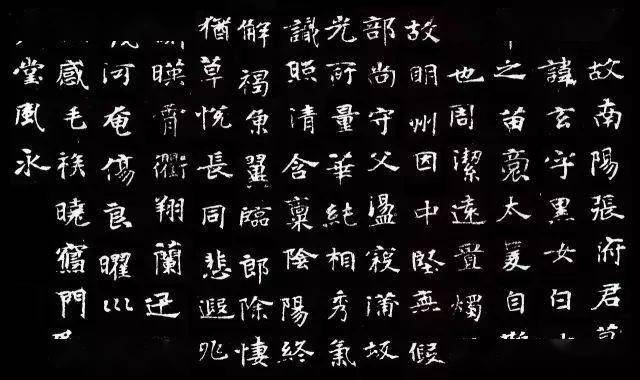 故南陽張府君
諱玄字黑女白
之苗裔太夏自
也周潔遠燭
故明州因中堅無假
部尚守父温寂蒲坂
光所量華純相秀氣
識照清含稟陰陽終
解褐魚翼臨郎除悽
猶草悅長同悲遐兆
暎霄衢翔蘭迅
河奄傷良曜巛
感毛曉窵門
堂風永